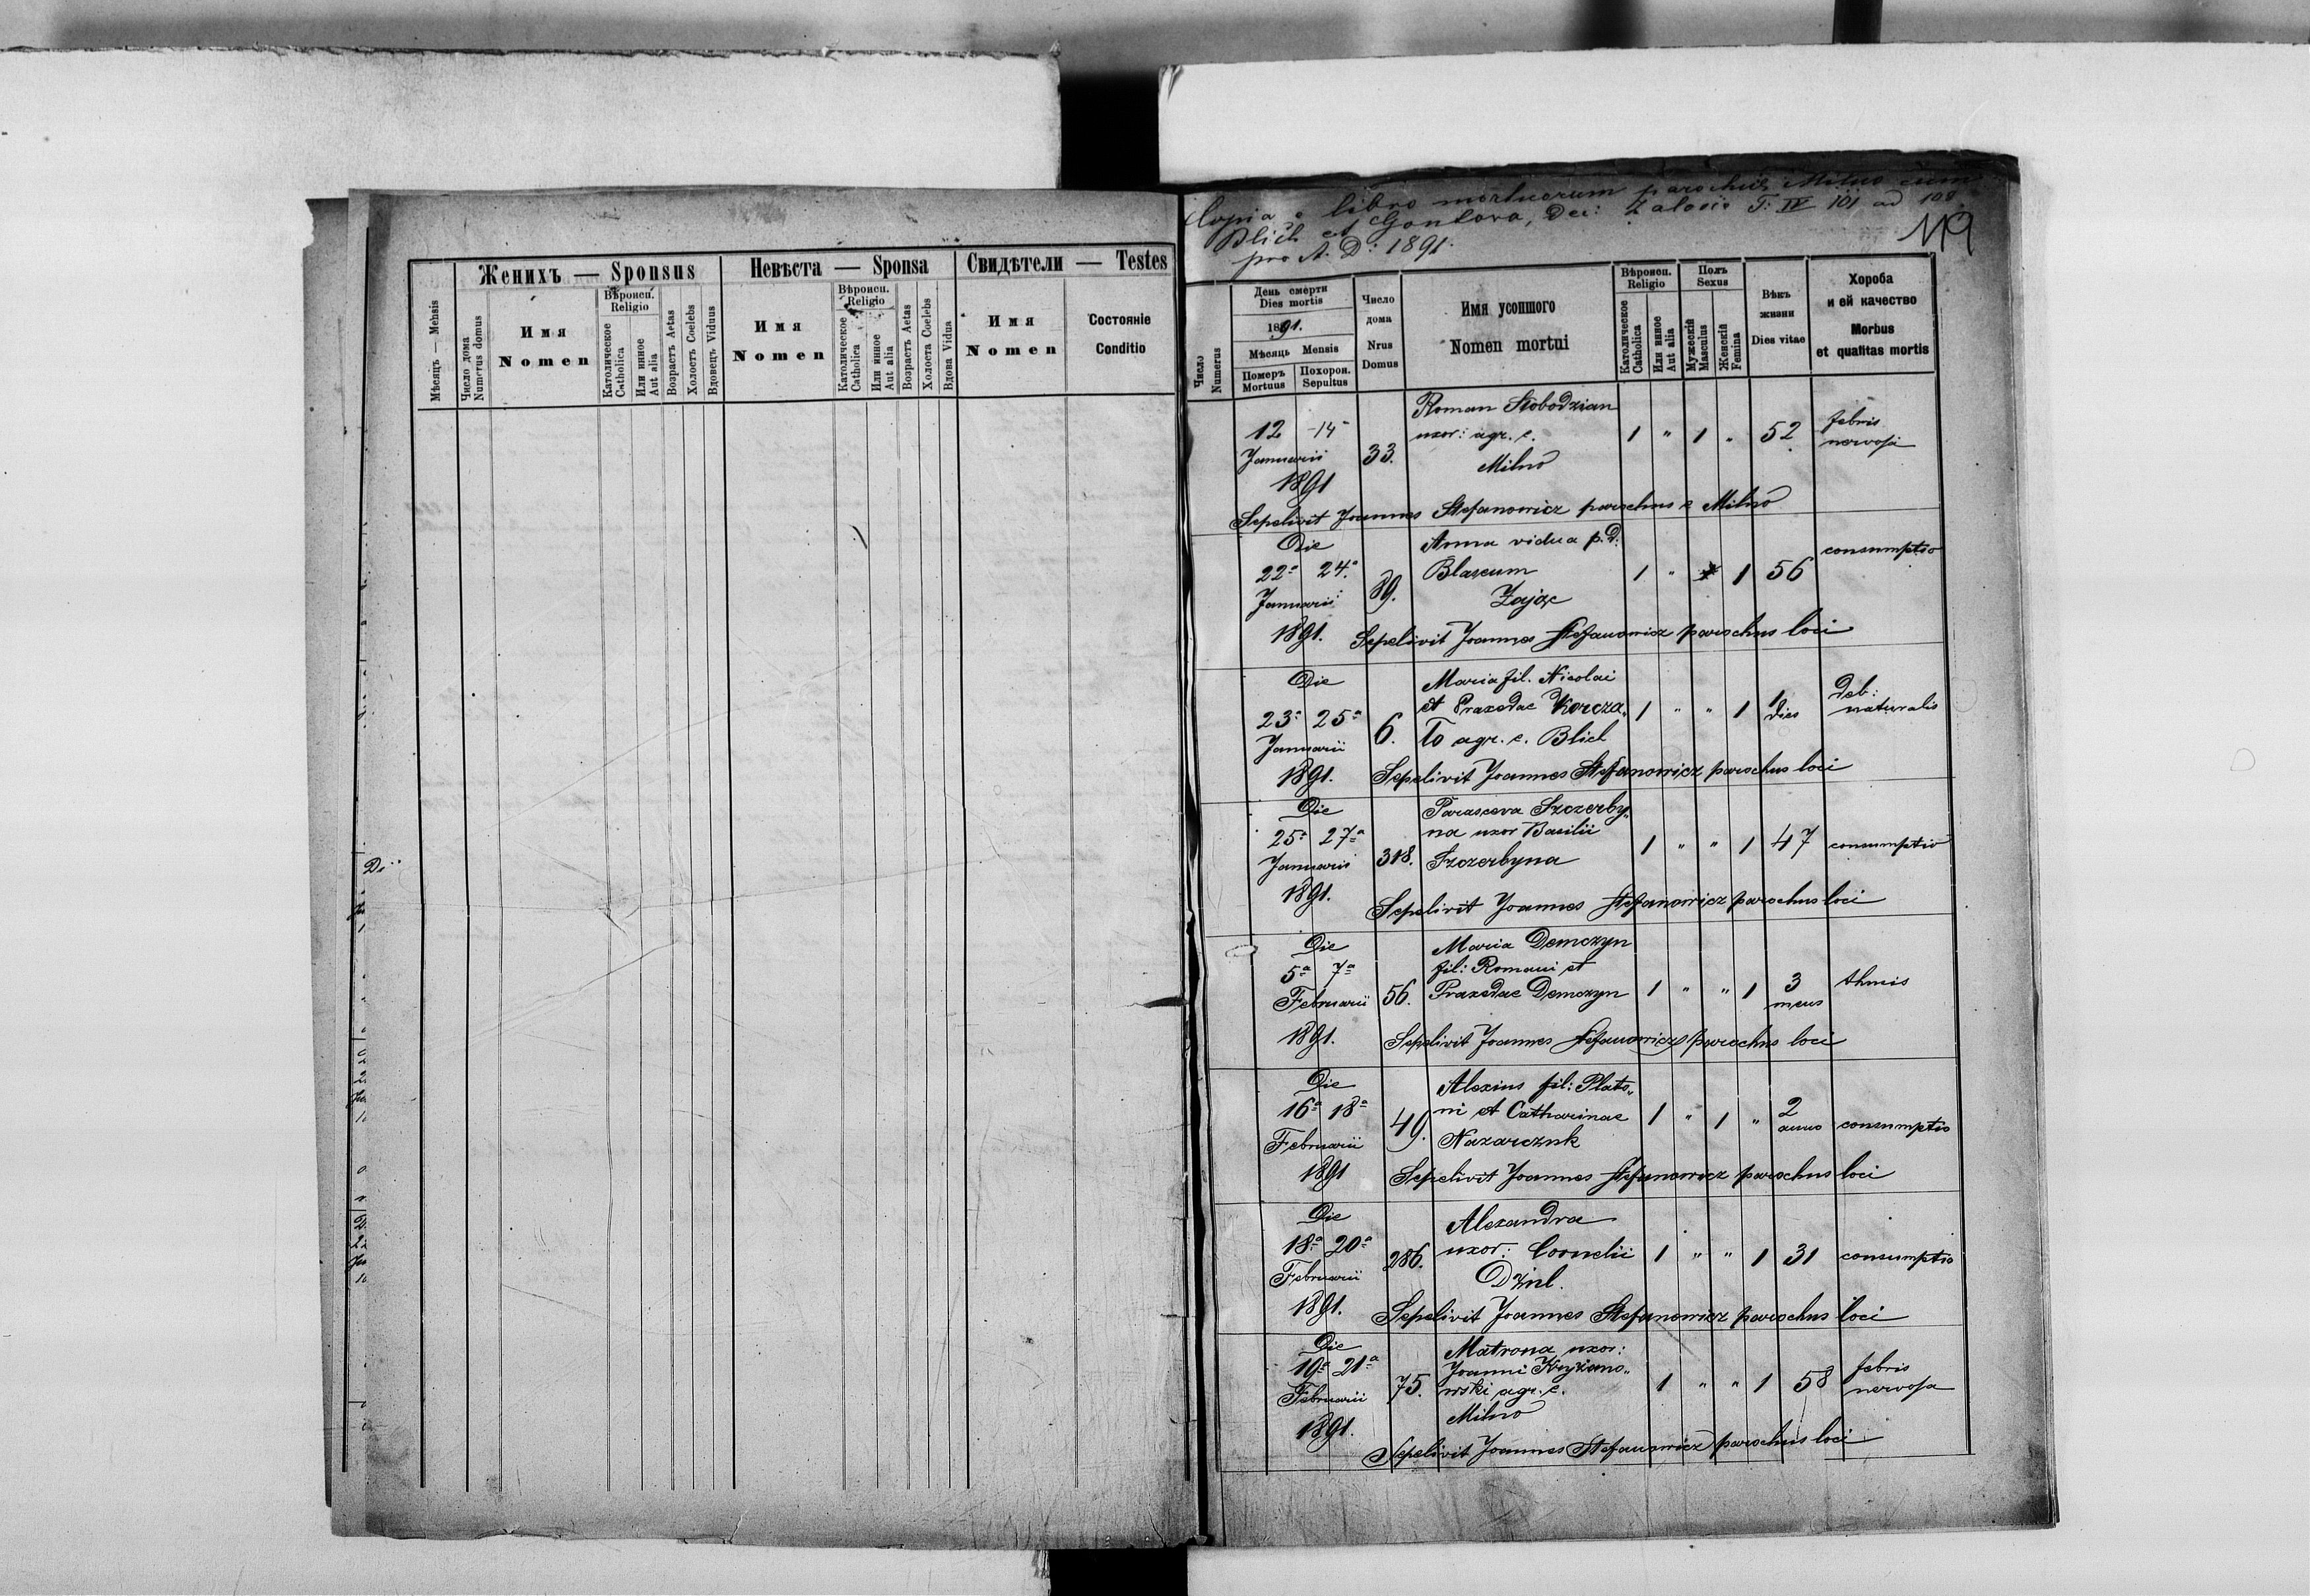 Женихъ — Sponsus
Невѣста — Sponsa
Свидѣтели — Testes
Мѣсяцъ — Mensis
Число дома
Numerus domus
Имя
Nomen
Вѣроисп.
Religio
Католическое
Catholica
Или инное
Aut alia
Возрастъ Aetas
Холостъ Coelebs
Вдовецъ Viduus
Имя
Nomen
Вѣроисп.
Religio
Католическое
Catholica
Или инное
Aut alia
Возрастъ Aetas
Холоста Coelebs
Вдова Vidua
Имя
Nomen
Состояніе
Conditio
Copia e libro mortuorum parochiae Milno cum
Blich et Gontova, Dec: Zalosio T: IV 101 ad 108
pro A. D: 1891.
119
Число
Numerus
День смерти
Dies mortis
1891.
Мѣсяць Mensis
Померъ
Mortuus
Похорон.
Sepultus
Число
дома
Nrus
Domus
Имя усопшого
Nomen mortui
Вѣроисп.
Religio
Католическое
Catholica
Или инное
Aut alia
Полъ
Sexus
Мужескій
Masculus
Женскій
Femina
Вѣкъ
жизни
Dies vitae
Хороба
и ей качество
Morbus
et qualitas mortis
Roman Slobodzian
12 14 uxor: agr. c. 1 " 1 " 52 febris
Januarii 33. Milno nervosa
1891
Sepelivit Joannes Stefanowicz parochus e Milno
Die Anna vidua p. d.
22a 24a Blascum 1 " 1 56 consumptio
Januarii 89. Zając
1891. Sepelivit Joannes Stefanowicz parochus loci
Die Maria fil. Nicolai
23a 25a et Praxedae Korcza„ 1 " " 1 1 dies deb: naturalis
Januarii 6. To agr. c. Blich
1891. Sepelivit Joannes Stefanowicz parochus loci
Die Parasceva Szczerby„
25a 27a na uxor Basilii 1 " " 1 47 consumptio
Januarii 318. Szczerbyna
1891. Sepelivit Joannes Stefanowicz parochus loci
Die Maria Demczyn
5a 7a fil: Romani et
Februarii 56. Praxedae Demczyn 1 " " 1 3 mens
1891. Sepelivit Joannes Stefanowicz parochus loci
Die Alexius fil: Plato„
16a 18a ni et Catharinae 1 " 1 " 2 anno consumptio
Februarii 49. Nazarczuk
1891 Sepelivit Joannes Stefanowicz parochus loci
Die Alexandra
18a 20a 286. uxor: Cornelii 1 " " 1 31 consumptio
Februarii
1891. Sepelivit Joannes Stefanowicz parochus loci
Die Matrona uxor:
19a 21a Joanni Kryżano„
Februarii 75. wski agr. c. 1 " " 1 58 febris nervosa
1891. Milno
Sepelivit Joannes Stefanowicz parochus loci